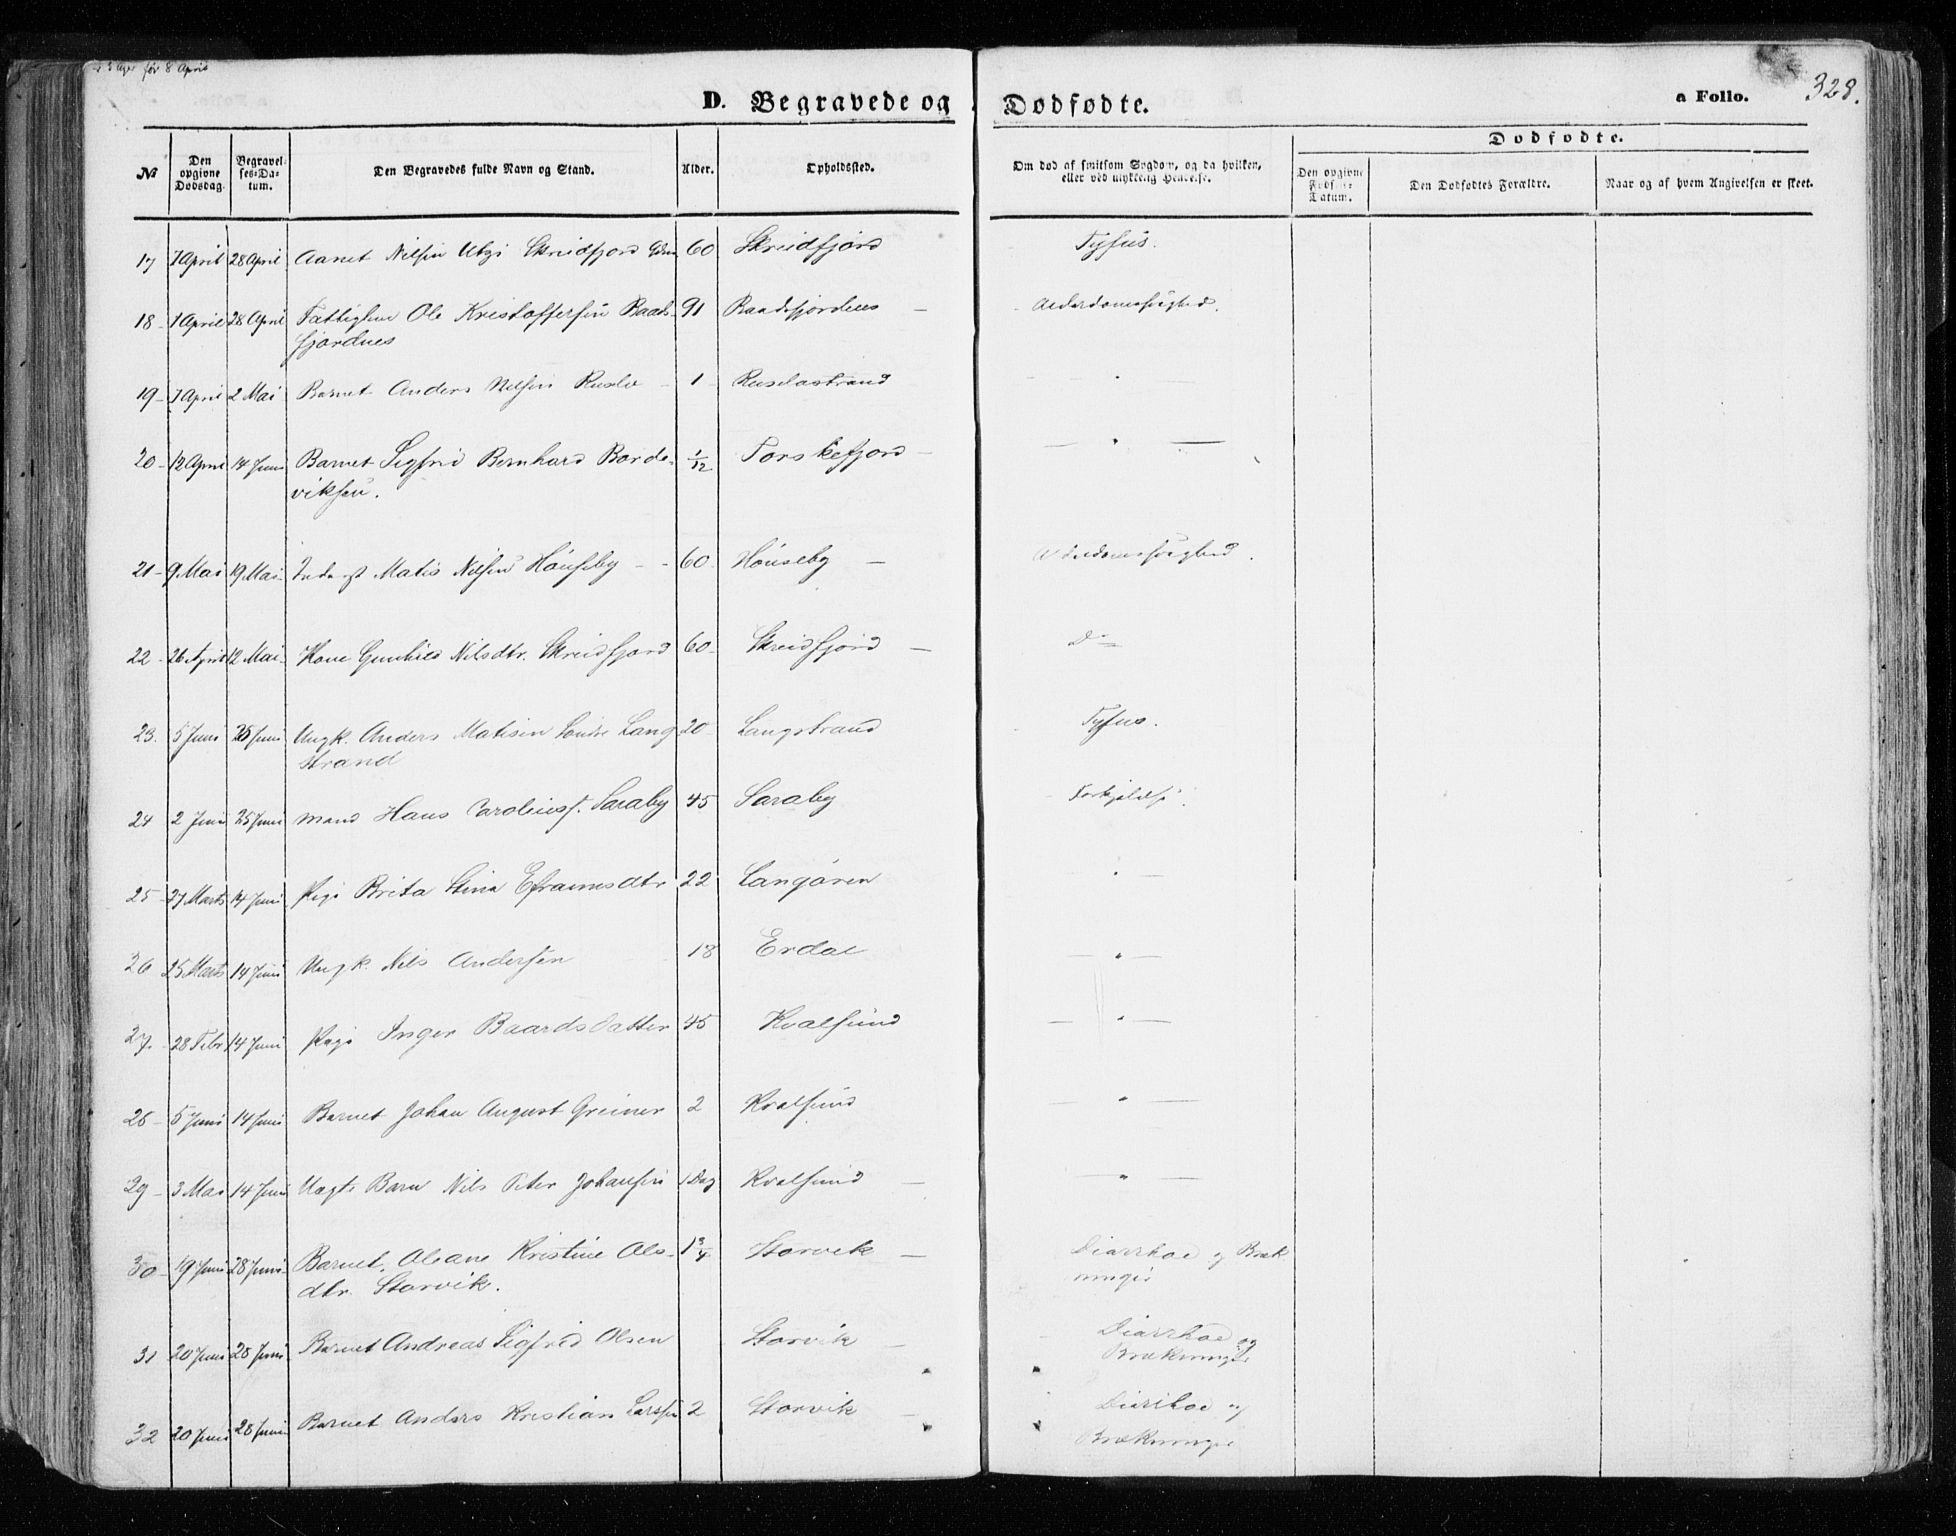 før 8 April
D. Begravede og Dødfødte. a Folio. 328.
№ Den opgivne Dødsdag. Begravelses-Datum. Den Begravedes fulde Navn og Stand. Alder. Opholdssted. Om død af smitsom Sygdom, og da hvilken, eller ved ulykkelig Hendelse. Dødfødte.
Den opgivne Fødsels-Datum. Den Dødfødtes Forældre. Naar og af hvem Angivelsen er skeet.
17 7 April 28 April Nilsen Skreidfjord 60 Skreidfjord Tyfus.
18 - 1 April 28 April Ole Kristoffersen Raads- 91 Raadsfjordnes - Alderdomssvaghed.
fjordnes
19 - 7 April 2 Mai Barnet Anders Nilsen - 1 - Ruselastrand - " -
20 - 12 April 14 Juni Barnet Sigfrid Bernhard Borde- 1/12 Torskefjord - - " -
viksen.
21 - 9 Mai 19 Mai Inderst Matis Nilsen Hönseby - - 60 Hönseby - Alderdomssvaghed.
22 - 26 April 12 Mai Kone Gunhild Nilsdtr. Skreidfjord 60 - Skreidfjord - Do
23. 5 Juni 25 Juni Ungk. Anders Matisen Lang 20 - Langstrand Tyfus.
strand
24 2 Juni 25 Juni Mand Hans Saraby 45 Saraby
25 - 27 Marts 14 Juni Pige Brita Stina Efraimsdtr 22 Langören " -
26 25 Marts 14 Juni Ungk. Nils Andersen 18 Erdal - " -
27. 28 Febr 14 Juni Pige Inger Baards Datter 45 Kvalsund - " -
28 - 5 Juni 14 Juni Barnet Johan August Greiner 2 Kvalsund - " -
29 - 3 Mai 14 Juni Uægte Barn Nils Peter Johansen 1 Dag Kvalsund - - " -
30 - 19 Juni 28 Juni Barnet. Kristine Ols- 1 3/4 Storvik - Diarrhoe og Bræk
dtr. Storvik. ninger
31 20 Juni 28 Juni Barnet Andreas Sigfrid Olsen Storvik - Diarrhoe og
Brækninger
32 20 Juni 28 Juni Barnet Anders Kristian Larsen 2 Storvik - Diarrhoe og
Brækninger